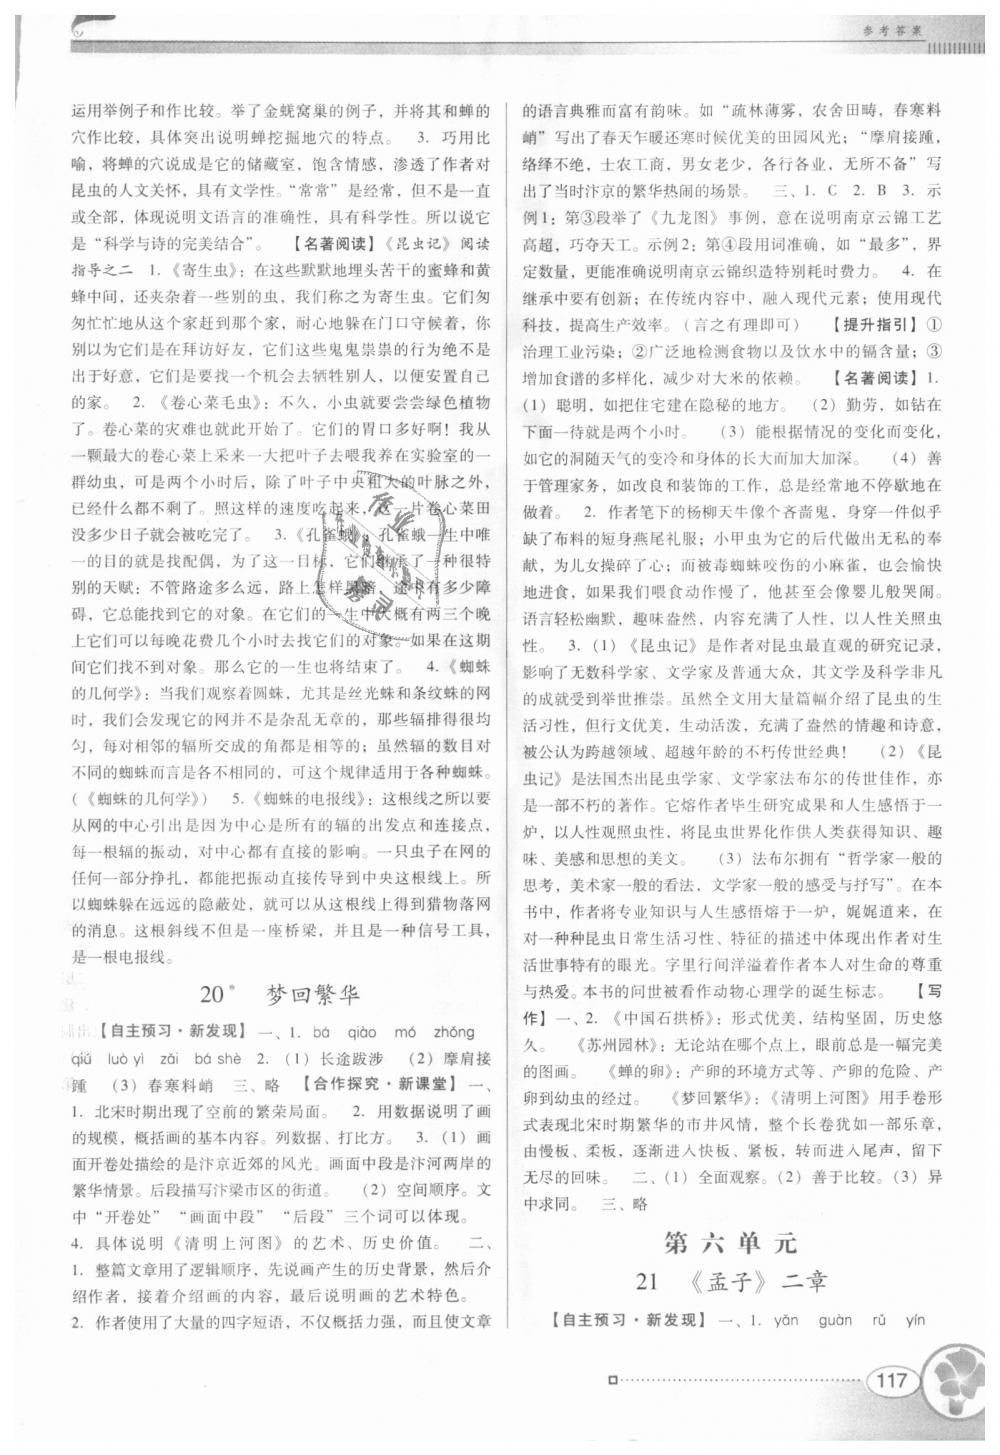 参考答案
运用举例子和作比较。举了金蜣窝巢的例子，并将其和蝉的
穴作比较，具体突出说明蝉挖掘地穴的特点。 3. 巧用比
喻，将蝉的穴说成是它的储藏室，饱含情感，渗透了作者对
昆虫的人文关怀，具有文学性。“常常”是经常，但不是一直
或全部，体现说明文语言的准确性，具有科学性。所以说它
是“科学与诗的完美结合”。 【名著阅读】《昆虫记》阅读
指导之二 1. 《寄生虫》：在这些默默地埋头苦干的蜜蜂和黄
蜂中间，还夹杂着一些别的虫，我们称之为寄生虫。它们匆
匆忙忙地从这个家赶到那个家，耐心地躲在门口守候着，你
别以为它们是在拜访好友，它们这些鬼鬼祟祟的行为绝不是
出于好意，它们是要找一个机会去牺牲别人，以便安置自己
的家。 2. 《卷心菜毛虫》：不久，小虫就要尝尝绿色植物
了。卷心菜的灾难也就此开始了。它们的胃口多好啊！我从
一颗最大的卷心菜上采来一大把叶子去喂我养在实验室的一
群幼虫，可是两个小时后，除了叶子中央粗大的叶脉之外，
已经什么都不剩了。照这样的速度吃起来，这一片卷心菜田
没多少日子就会被吃完了。 3. 《孔雀蛾》：孔雀蛾一生中唯
一的目的就是找配偶，为了这一目标，它们继承了一种很特
别的天赋：不管路途多么远，路上怎样黑暗，途中有多少障
碍，它总能找到它的对象。在它们的一生中大概有两三个晚
上它们可以每晚花费几个小时去找它们的对象。如果在这期
间它们找不到对象。那么它的一生也将结束了。 4. 《蜘蛛
的几何学》：当我们观察着圆蛛，尤其是丝光蛛和条纹蛛的网
时，我们会发现它的网并不是杂乱无章的，那些辐排得很均
匀，每对相邻的辐所交成的角都是相等的；虽然辐的数目对
不同的蜘蛛而言是各不相同的，可这个规律适用于各种蜘蛛。
（《蜘蛛的几何学》） 5. 《蜘蛛的电报线》：这根线之所以要
从网的中心引出是因为中心是所有的辐的出发点和连接点，
每一根辐的振动，对中心都有直接的影响。一只虫子在网的
任何一部分挣扎，都能把振动直接传导到中央这根线上。所
以蜘蛛躲在远远的隐蔽处，就可以从这根线上得到猎物落网
的消息。这根斜线不但是一座桥梁，并且是一种信号工具，
是一根电报线。
20* 梦回繁华
【自主预习·新发现】一、1. bá qiào mó zhǒng
qiú luò yì zǎi bá shè 2. （1）长途跋涉 （2）摩肩接
踵 （3）春寒料峭 三、略 【合作探究·新课堂】一、
1. 北宋时期出现了空前的繁荣局面。 2. 用数据说明了画
的规模，概括画的基本内容。列数据、打比方。 3. （1）画
面开卷处描绘的是汴京近郊的风光。画面中段是汴河两岸的
繁华情景。后段描写汴梁市区的街道。 （2）空间顺序。文
中“开卷处” “画面中段” “后段”三个词可以体现。
4. 具体说明《清明上河图》的艺术、历史价值。 二、
1. 整篇文章用了逻辑顺序，先说画产生的历史背景，然后介
绍作者，接着介绍画的内容，最后说明画的艺术特色。
2. 作者使用了大量的四字短语，不仅概括力强，而且使文章
的语言典雅而富有韵味。如“疏林薄雾，农舍田畴，春寒料
峭”写出了春天乍暖还寒时候优美的田园风光；“摩肩接踵，
络绎不绝，士农工商，男女老少，各行各业，无所不备”写
出了当时汴京的繁华热闹的场景。 三、1. C 2. B 3. 示
例1：第③段举了《九龙图》事例，意在说明南京云锦工艺
高超，巧夺天工。示例2：第④段用词准确，如“最多”，界
定数量，更能准确说明南京云锦织造特别耗时费力。 4. 在
继承中要有创新；在传统内容中，融入现代元素；使用现代
科技，提高生产效率。（言之有理即可） 【提升指引】①
治理工业污染；②广泛地检测食物以及饮水中的镉含量；③
增加食谱的多样化，减少对大米的依赖。 【名著阅读】1.
（1）聪明，如把住宅建在隐秘的地方。 （2）勤劳，如钻在
下面一待就是两个小时。 （3）能根据情况的变化而变化，
如它的洞随天气的变冷和身体的长大而加大加深。 （4）善
于管理家务，如改良和装饰的工作，总是经常地不停歇地在
做着。 2. 作者笔下的杨柳天牛像个吝啬鬼，身穿一件似乎
缺了布料的短身燕尾礼服；小甲虫为它的后代做出无私的奉
献，为儿女操碎了心；而被毒蜘蛛咬伤的小麻雀，也会愉快
地进食，如果我们喂食动作慢了，他甚至会像婴儿般哭闹。
语言轻松幽默，趣味盎然，文章充满了人性，以人性关照虫
性。 3. （1）《昆虫记》是作者对昆虫最直观的研究记录，
影响了无数科学家、文学家及普通大众，其文学及科学非凡
的成就受到举世推崇。虽然全文用大量篇幅介绍了昆虫的生
活习性，但行文优美，生动活泼，充满了盎然的情趣和诗意，
被公认为跨越领域、超越年龄的不朽传世经典！ （2）《昆
虫记》是法国杰出昆虫学家、文学家法布尔的传世佳作，亦
是一部不朽的著作。它熔作者毕生研究成果和人生感悟于一
炉，以人性观照虫性，将昆虫世界化作供人类获得知识、趣
味、美感和思想的美文。 （3）法布尔拥有“哲学家一般的
思考，美术家一般的看法，文学家一般的感受与抒写”。在本
书中，作者将专业知识与人生感悟熔于一炉，娓娓道来，在
对一种种昆虫日常生活习性、特征的描述中体现出作者对生
活世事特有的眼光。字里行间洋溢着作者本人对生命的尊重
与热爱。本书的问世被看作动物心理学的诞生标志。 【写
作】一、2. 《中国石拱桥》：形式优美，结构坚固，历史悠
久。 《苏州园林》：无论站在哪个点上，眼前总是一幅完美
的图画。 《蝉的卵》：产卵的环境方式等、产卵的危险、产
卵到幼虫的经过。 《梦回繁华》：《清明上河图》用手卷形
式表现北宋时期繁华的市井风情，整个长卷犹如一部乐章，
由慢板、柔板，逐渐进入快板、紧板，转而进入尾声，留下
无尽的回味。 二、（1）全面观察。（2）善于比较。（3）异
中求同。 三、略
第六单元
21 《孟子》二章
【自主预习·新发现】一、1. yǎn guàn rǔ yín
117